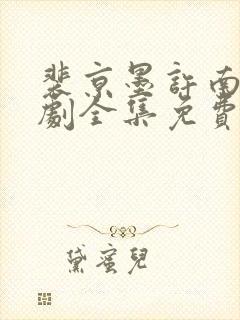 裴京墨許南
劇全集免費
黛蜜兒